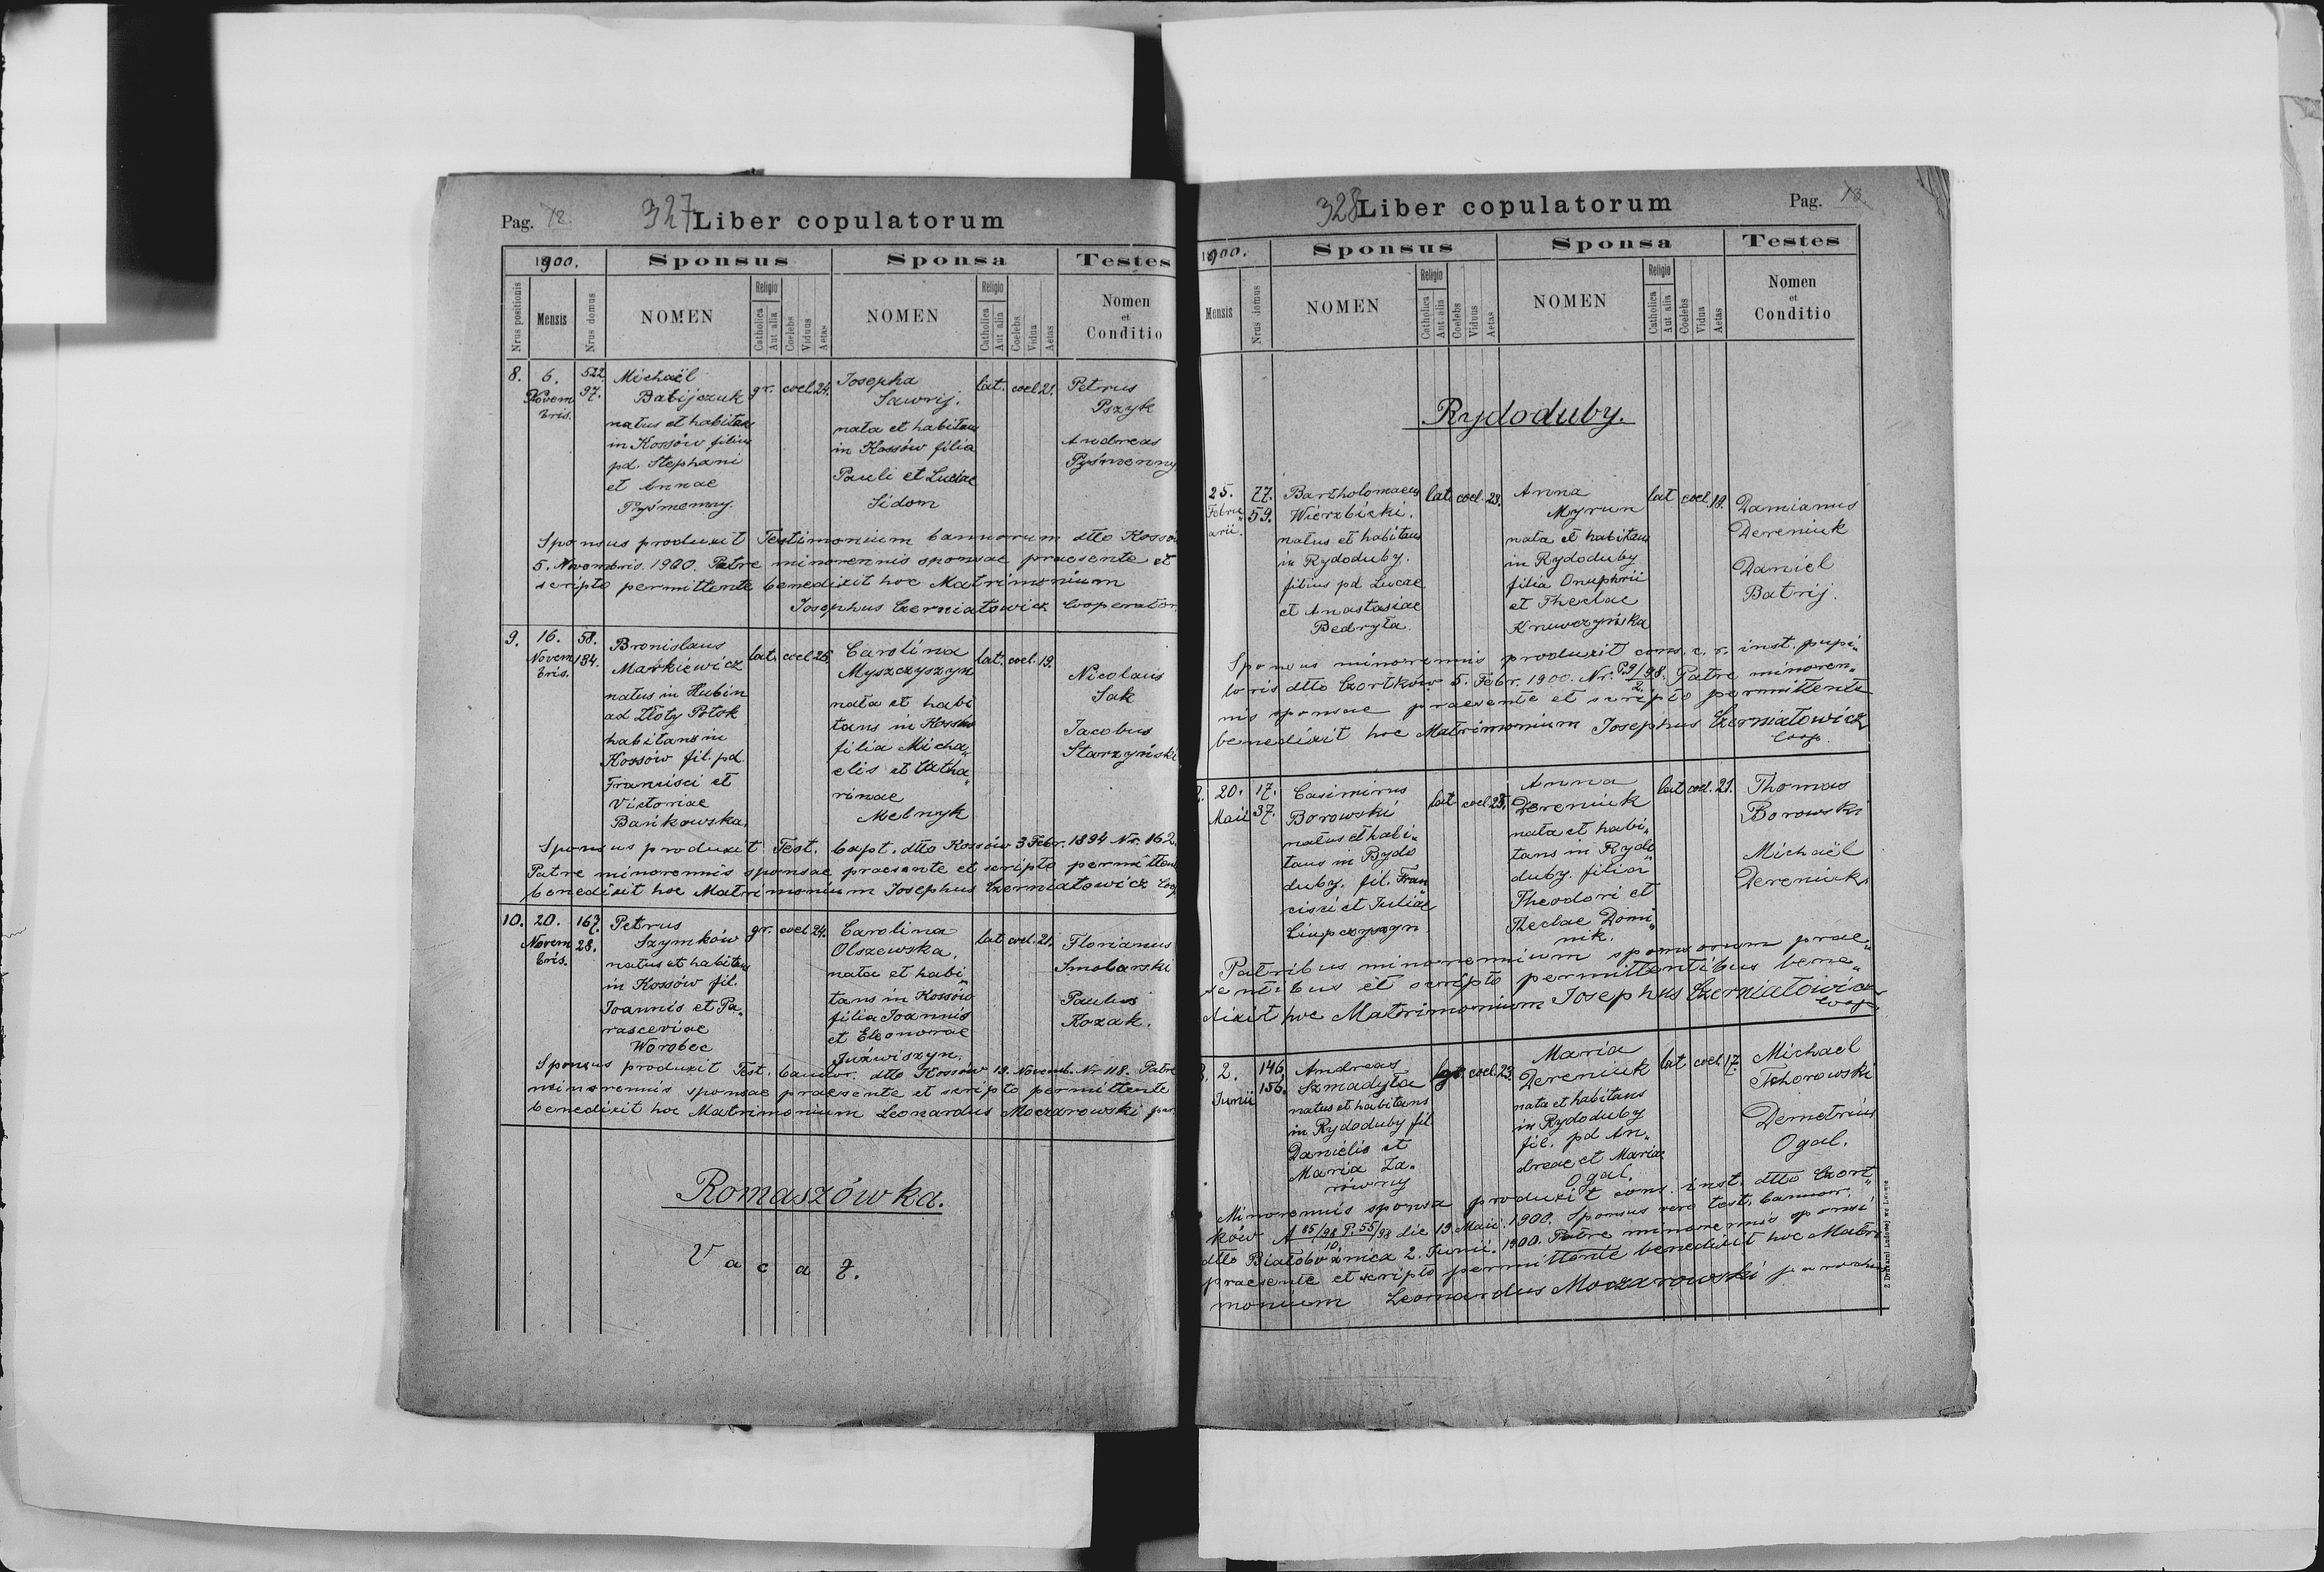 Pag. 72.
327 Liber copulatorum
1900.
Sponsus
Sponsa
Testes
Nrus positionis
Mensis
Nrus domus
NOMEN
Religio
Catholica
Aut alia
Coelebs
Viduus
Aetas
NOMEN
Religio
Catholica
Aut alia
Coelebs
Vidua
Aetas
Nomen
et
Conditio
8.
6.
Novem
bris.
522
97.
Michaël
Batijczuk
natus et habitans
in Kossów filius
pd. Stephani
et Annae
Pyśmenny.
gr. coel. 24.
Josepha
Sawrij.
nata et habitans
in Kossów filia
Pauli et Luciae
Sidom
lat. coel. 21.
Petrus
Pszyk
Andreas
Pyśmenny
Sponsus produxit Testimonium bannorum dtto Kossów
5. Novembris. 1900. Patre minorennis sponsae praesente et
scripto permittente benedixit hoc Matrimonium
Josephus Czerniatowicz Cooperator
9.
16.
Novem
bris.
58.
134.
Bronislaus
Markiewicz
natus in Hubin
ad Złoty Potok
habitans in
Kossów fil. pd.
Francisci et
Victoriae
Bańkowska.
lat. coel. 26.
Carolina
Myszczyszyn
nata et habi
tans in Kossów
filia Micha„
elis et Catha„
rinae
Melnyk
lat. coel. 19.
Nicolaus
Sak
Jacobus
Starzyński
Sponsus produxit Test. bapt. dtto Kossów 3 Febr. 1894 Nr. 162.
Patre minorennis sponsae praesente et scripto permittente
benedixit hoc Matrimonium Josephus Czerniatowicz Coop
10.
20.
Novem
bris.
167.
28.
Petrus
Szymków
natus et habitans
in Kossów fil.
Joannis et Pa„
rasceviae
Worobec
gr. coel. 24.
Carolina
Olszewska,
nata et habi„
tans in Kossów
filia Joannis
et Eleonorae
Juźwiszyn.
lat coel. 21.
Florianus
Smolarski
Paulus
Kozak.
Sponsus produxit Test. bannor. dtto Kossów 19. Novemb. Nr 118. Patre
minorennis sponsae praesente et scripto permittente
benedixit hoc Matrimonium Leonardus Moczarowski par
Romaszówka.
Vacat.
328 Liber copulatorum
Pag. 73.
1900.
Sponsus
Sponsa
Testes
Mensis
Nrus domus
NOMEN
Religio
Catholica
Aut alia
Coelebs
Viduus
Aetas
NOMEN
Religio
Catholica
Aut alia
Coelebs
Vidua
Aetas
Nomen
et
Conditio
Rydoduby.
25.
Febru
arii.
77.
59.
Bartholomaeus
Wierzbicki.
natus et habitans
in Rydoduby.
filius pd Lucae
et Anastasiae
Bedryła
lat. coel. 23.
Anna
Myrun
nata et habitans
in Rydoduby
filia Onuphrii
et Theclae
Kruwczyńska
lat coel. 19.
Damianus
Dereniuk
Daniel
Batrij.
Sponsus minorennis produxit cons. c. r. inst. pupi„
loris dtto Czortków 5. Febr. 1900. Nr. P.9/98. Patre minoren„
2.
nis sponsae praesente et scripto permittente
benedixit hoc Matrimonium Josephus Czerniatowicz
Coop.
20.
Maii
17.
37.
Casimirus
Borowski
natus et habi„
tans in Rydo
duby. fil. Fran
cisci et Juliae
lat coel. 23.
Anna
Dereniuk
nata et habi„
tans in Rydo„
duby. filia
Theodori et
Theclae Domi„
nik.
lat coel. 21.
Thomas
Borowski
Michaël
Dereniuk.
Patribus minorennium sponsorum prae„
sentibus et scripto permittentibus bene„
dixit hoc Matrimonium Josephus Czerniatowicz
Coop.
2.
Junii
146,
156.
Andreas
Szmadyła
natus et habitans
in Rydoduby fil
Danielis et
Maria Za„
równy
coel. 23.
Maria
Dereniuk
nata et habitans
in Rydoduby
fil. pd An„
dreae et Mariae
Ogal.
lat coel. 17.
Michael
Tchorowski
Demetrius
Ogal.
Minorennis sponsa produxit cons. inst. dtto Czort„
ków A 85/98 P. 55/98 die 19 Maii. 1900. Sponsus vero test. bannor.
10.
dtto Białobożnica 2. Junii. 1900. Patre minorennis sponsi
praesente et scripto permittente benedixit hoc Matri
monium Leonardus Moczarowski parochus
Z Drukarni Ludowej we Lwowie